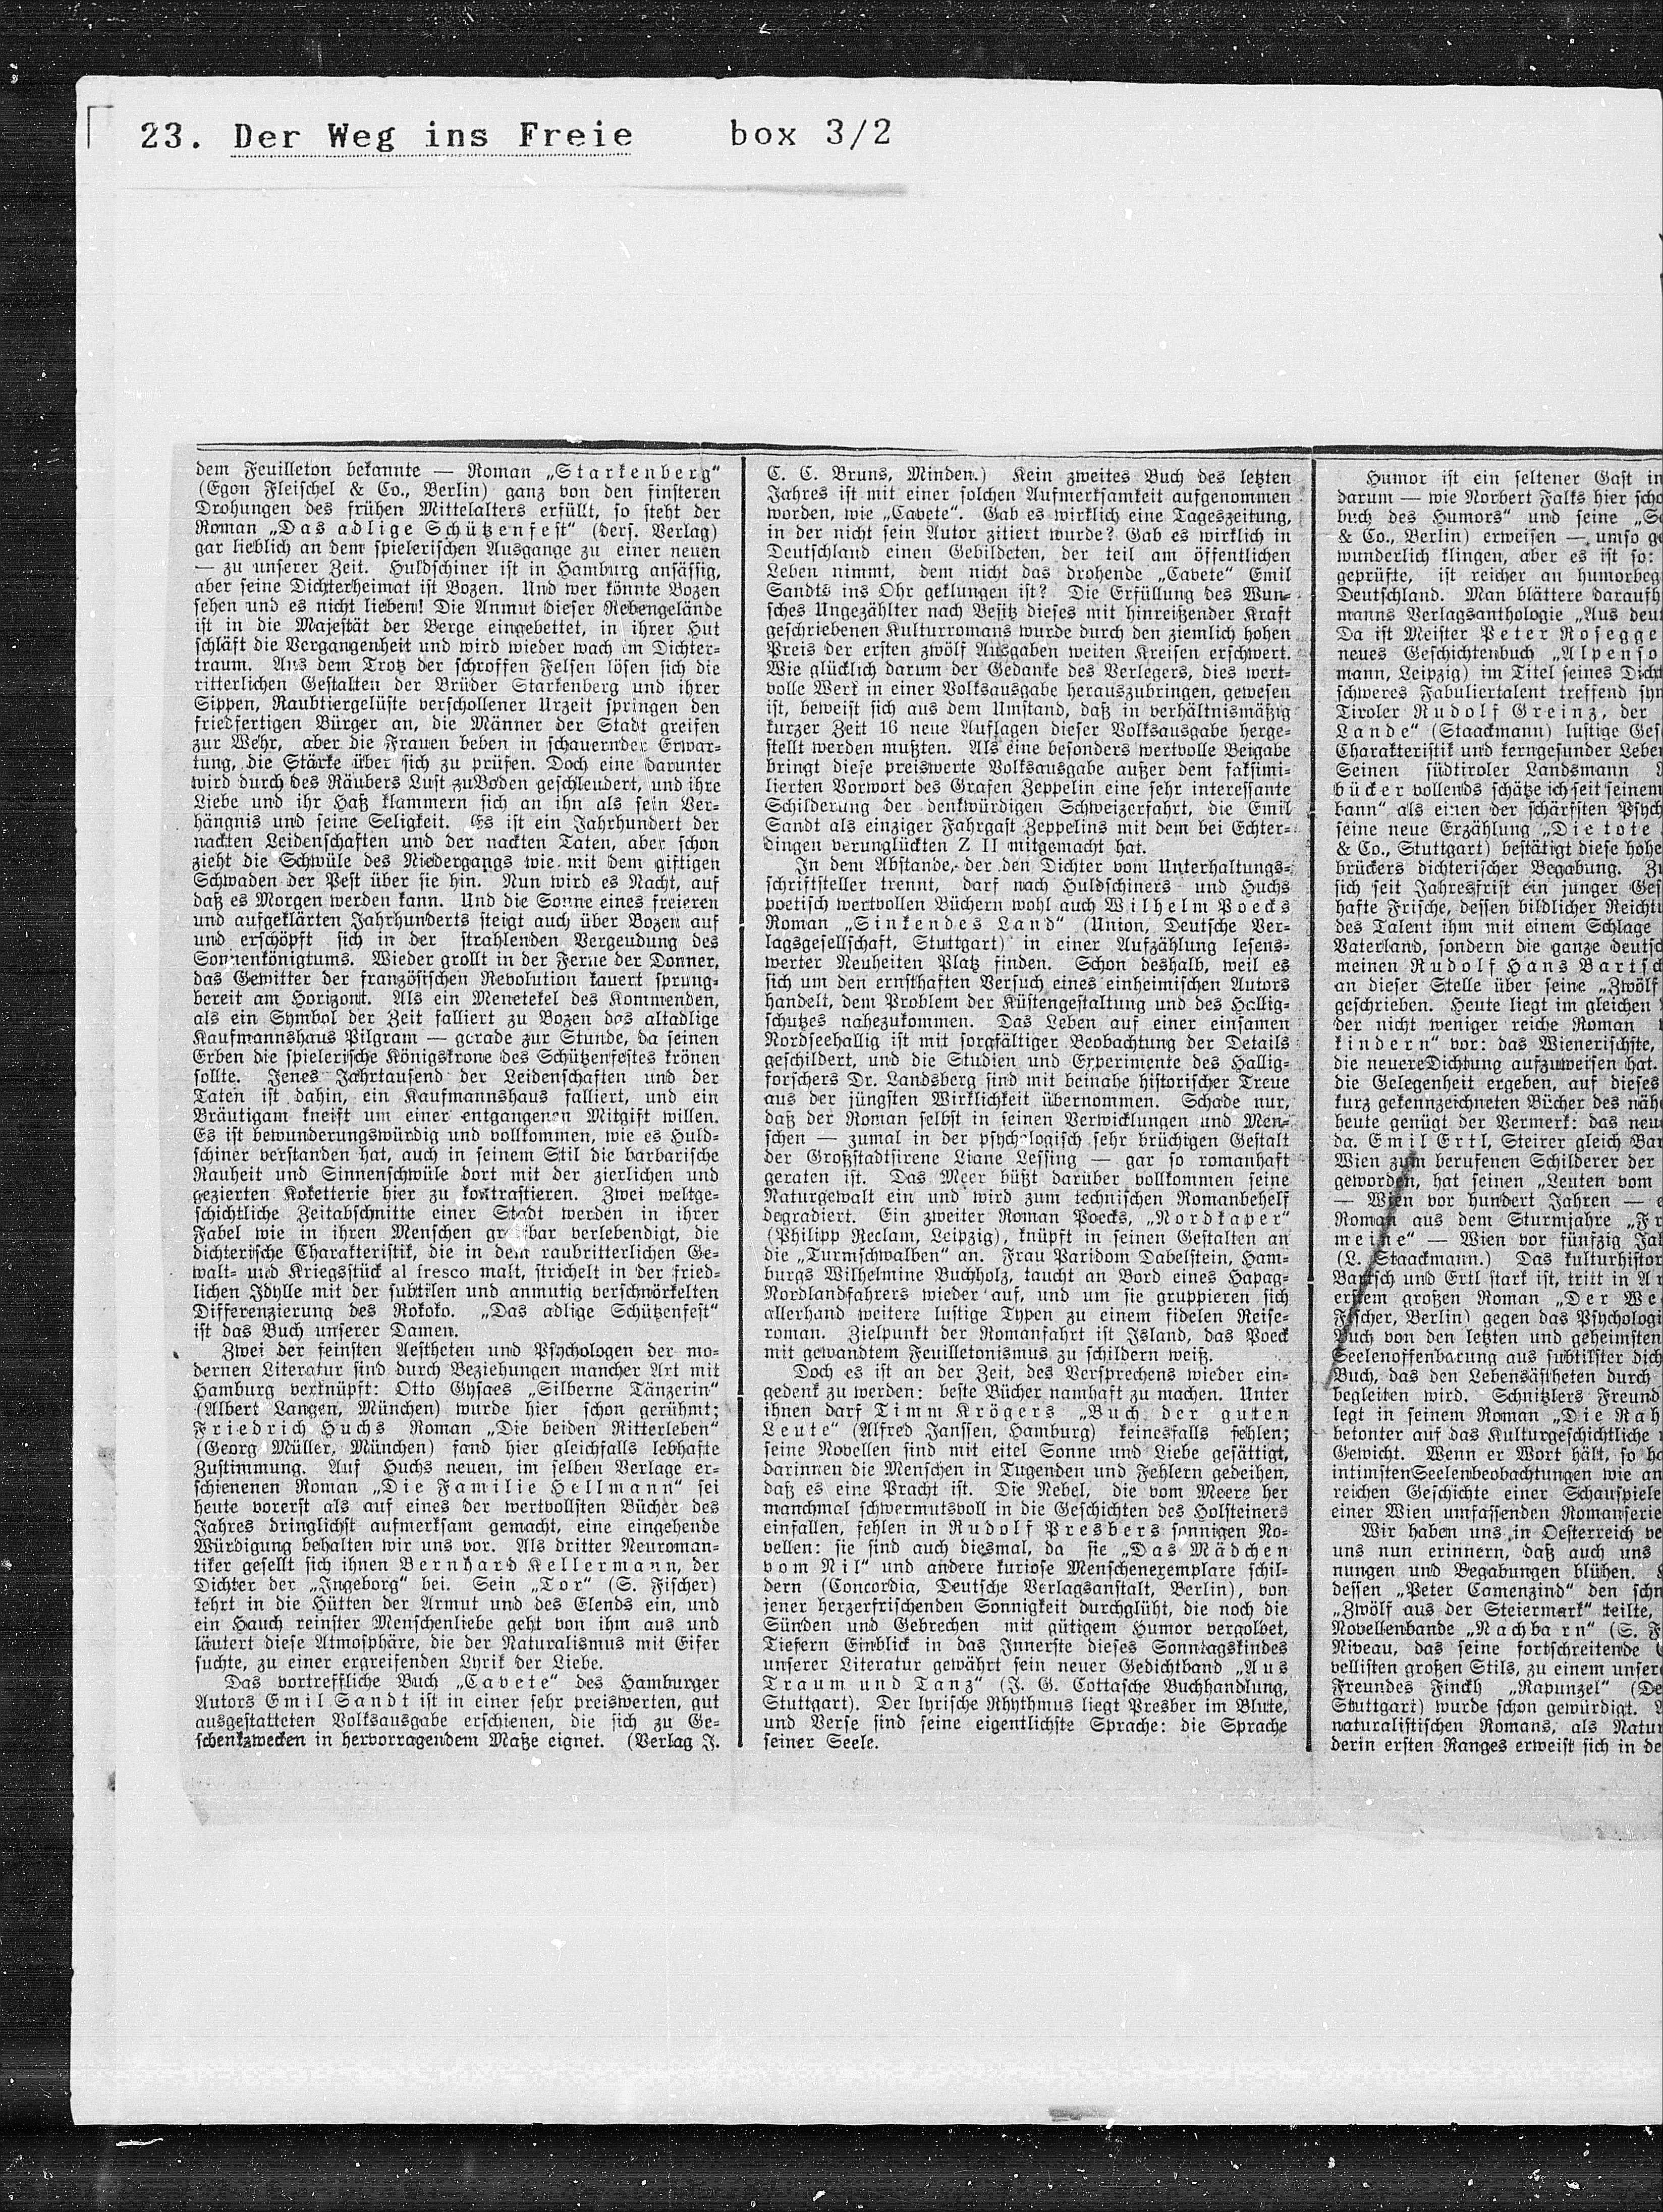 23. Der Weg ins Freie box 3/2
dem Feuilleton bekannte — Roman „Starkenberg“
(Egon Fleischel & Co., Berlin) ganz von den finsteren
Drohungen des frühen Mittelalters erfüllt, so steht der
Roman „Das adlige Schützenfest“ (ders. Verlag)
gar lieblich an dem spielerischen Ausgange zu einer neuen
— zu unserer Zeit. Huldschiner ist in Hamburg ansässig,
aber seine Dichterheimat ist Bozen. Und wer könnte Bozen
sehen und es nicht lieben! Die Anmut dieser Rebengelände
ist in die Majestät der Berge eingebettet, in ihrer Hut
schläft die Vergangenheit und wird wieder wach im Dichter-
traum. Aus dem Trotz der schroffen Felsen lösen sich die
ritterlichen Gestalten der Brüder Starkenberg und ihrer
Sippen, Raubtiergelüste verschollener Urzeit springen den
friedfertigen Bürger an, die Männer der Stadt greifen
zur Wehr, aber die Frauen beben in schauernder Erwar-
tung, die Stärke über sich zu prüfen. Doch eine darunter
wird durch des Räubers Lust zu Boden geschleudert, und ihre
Liebe und ihr Haß klammern sich an ihn als sein Ver-
hängnis und seine Seligkeit. Es ist ein Jahrhundert der
nackten Leidenschaften und der nackten Taten, aber schon
zieht die Schwüle des Niedergangs wie mit dem giftigen
Schwaden der Pest über sie hin. Nun wird es Nacht, auf
daß es Morgen werden kann. Und die Sonne eines freieren
und aufgeklärten Jahrhunderts steigt auch über Bozen auf
und erschöpft sich in der strahlenden Vergeudung des
Sonnenkönigtums. Wieder grollt in der Ferne der Donner,
das Gewitter der französischen Revolution kauert sprung-
bereit am Horizont. Als ein Menetekel des Kommenden,
als ein Symbol der Zeit falliert zu Bozen das altadlige
Kaufmannshaus Pilgram — gerade zur Stunde, da seinen
Erben die spielerische Königskrone des Schützenfestes krönen
sollte. Jenes Jahrtausend der Leidenschaften und der
Taten ist dahin, ein Kaufmannshaus falliert, und ein
Bräutigam kneift um einer entgangenen Mitgift willen.
Es ist bewunderungswürdig und vollkommen, wie es Huld-
schiner verstanden hat, auch in seinem Stil die barbarische
Rauheit und Sinnenschwüle dort mit der zierlichen und
gezierten Koketterie hier zu kontrastieren. Zwei weltge-
schichtliche Zeitabschnitte einer Stadt werden in ihrer
Fabel wie in ihren Menschen greifbar verlebendigt, die
dichterische Charakteristik, die in dem raubritterlichen Ge-
walt- und Kriegsstück al fresco malt, strichelt in der fried-
lichen Idylle mit der subtilen und anmutig verschnörkelten
Differenzierung des Rokoko. „Das adlige Schützenfest“
ist das Buch unserer Damen.
Zwei der feinsten Aestheten und Psychologen der mo-
dernen Literatur sind durch Beziehungen mancher Art mit
Hamburg verknüpft: Otto Gysaes „Silberne Tänzerin“
(Albert Langen, München) wurde hier schon gerühmt;
Friedrich Huchs Roman „Die beiden Ritterleben“
(Georg Müller, München) fand hier gleichfalls lebhafte
Zustimmung. Auf Huchs neuen, im selben Verlage er-
schienenen Roman „Die Familie Hellmann“ sei
heute vorerst als auf eines der wertvollsten Bücher des
Jahres dringlichst aufmerksam gemacht, eine eingehende
Würdigung behalten wir uns vor. Als dritter Neuroman-
tiker gesellt sich ihnen Bernhard Kellermann, der
Dichter der „Ingeborg“ bei. Sein „Tor“ (S. Fischer)
kehrt in die Hütten der Armut und des Elends ein, und
ein Hauch reinster Menschenliebe geht von ihm aus und
läutert diese Atmosphäre, die der Naturalismus mit Eifer
suchte, zu einer ergreifenden Lyrik der Liebe.
Das vortreffliche Buch „Cavete“ des Hamburger
Autors Emil Sandt ist in einer sehr preiswerten, gut
ausgestatteten Volksausgabe erschienen, die sich zu Ge-
schenkzwecken in hervorragendem Maße eignet. (Verlag J.
C. C. Bruns, Minden.) Kein zweites Buch des letzten
Jahres ist mit einer solchen Aufmerksamkeit aufgenommen
worden, wie „Cavete“. Gab es wirklich eine Tageszeitung,
in der nicht sein Autor zitiert wurde? Gab es wirklich in
Deutschland einen Gebildeten, der teil am öffentlichen
Leben nimmt, dem nicht das drohende „Cavete“ Emil
Sandts ins Ohr geklungen ist? Die Erfüllung des Wun-
sches Ungezählter nach Besitz dieses mit hinreißender Kraft
geschriebenen Kulturromans wurde durch den ziemlich hohen
Preis der ersten zwölf Ausgaben weiten Kreisen erschwert.
Wie glücklich darum der Gedanke des Verlegers, dies wert-
volle Werk in einer Volksausgabe herauszubringen, gewesen
ist, beweist sich aus dem Umstand, daß in verhältnismäßig
kurzer Zeit 16 neue Auflagen dieser Volksausgabe herge-
stellt werden mußten. Als eine besonders wertvolle Beigabe
bringt diese preiswerte Volksausgabe außer dem faksimi-
lierten Vorwort des Grafen Zeppelin eine sehr interessante
Schilderung der denkwürdigen Schweizerfahrt, die Emil
Sandt als einziger Fahrgast Zeppelins mit dem bei Echter-
dingen verunglückten Z II mitgemacht hat.
In dem Abstande, der den Dichter vom Unterhaltungs-
schriftsteller trennt, darf nach Huldschiners und Huchs
poetisch wertvollen Büchern wohl auch Wilhelm Poecks
Roman „Sinkendes Land“ (Union, Deutsche Ver-
lagsgesellschaft, Stuttgart) in einer Aufzählung lesens-
werter Neuheiten Platz finden. Schon deshalb, weil es
sich um den ernsthaften Versuch eines einheimischen Autors
handelt, dem Problem der Küstengestaltung und des Hallig-
schutzes nahezukommen. Das Leben auf einer einsamen
Nordseehallig ist mit sorgfältiger Beobachtung der Details
geschildert, und die Studien und Experimente des Hallig-
forschers Dr. Landsberg sind mit beinahe historischer Treue
aus der jüngsten Wirklichkeit übernommen. Schade nur,
daß der Roman selbst in seinen Verwicklungen und Men-
schen — zumal in der psychologisch sehr brüchigen Gestalt
der Großstadtsirene Liane Lessing — gar so romanhaft
geraten ist. Das Meer büßt darüber vollkommen seine
Naturgewalt ein und wird zum technischen Romanbehelf
degradiert. Ein zweiter Roman Poecks, „Nordkaper“
(Philipp Reclam, Leipzig), knüpft in seinen Gestalten an
die „Turmschwalben“ an. Frau Paridom Dabelstein, Ham-
burgs Wilhelmine Buchholz, taucht an Bord eines Hapag-
Nordlandfahrers wieder auf, und um sie gruppieren sich
allerhand weitere lustige Typen zu einem fidelen Reise-
roman. Zielpunkt der Romanfahrt ist Island, das Poeck
mit gewandtem Feuilletonismus zu schildern weiß.
Doch es ist an der Zeit, des Versprechens wieder ein-
gedenk zu werden: beste Bücher namhaft zu machen. Unter
ihnen darf Timm Krögers „Buch der guten
Leute“ (Alfred Janssen, Hamburg) keinesfalls fehlen;
seine Novellen sind mit eitel Sonne und Liebe gesättigt,
darinnen die Menschen in Tugenden und Fehlern gedeihen,
daß es eine Pracht ist. Die Nebel, die vom Meere her
manchmal schwermutsvoll in die Geschichten des Holsteiners
einfallen, fehlen in Rudolf Presbers sonnigen No-
vellen: sie sind auch diesmal, da sie „Das Mädchen
vom Nil“ und andere kuriose Menschenexemplare schil-
dern (Concordia, Deutsche Verlagsanstalt, Berlin), von
jener herzerfrischenden Sonnigkeit durchglüht, die noch die
Sünden und Gebrechen mit gütigem Humor vergoldet,
Tiefern Einblick in das Innerste dieses Sonntagskindes
unserer Literatur gewährt sein neuer Gedichtband „Aus
Traum und Tanz“ (J. G. Cottasche Buchhandlung,
Stuttgart). Der lyrische Rhythmus liegt Presber im Blute,
und Verse sind seine eigentlichste Sprache: die Sprache
seiner Seele.
Humor ist ein seltener Gast in
darum — wie Norbert Falks hier scho
buch des Humors“ und seine „Se
& Co., Berlin) erweisen — umso ge
wunderlich klingen, aber es ist so:
geprüfte, ist reicher an humorbeg
Deutschland. Man blättere daraufh
manns Verlagsanthologie „Aus deut
Da ist Meister Peter Rosegge
neues Geschichtenbuch „Alpenso
mann, Leipzig) im Titel seines Dicht
schweres Fabuliertalent treffend sym
Tiroler Rudolf Greinz, der
Lande“ (Staackmann) lustige Ges
Charakteristik und kerngesunder Leben
Seinen südtiroler Landsmann
bücker vollends schätze ich seit seinem
bann“ als einen der schärfsten Psych
seine neue Erzählung „Die tote
& Co., Stuttgart) bestätigt diese hohe
brückers dichterischer Begabung. Zu
sich seit Jahresfrist ein junger Ges
hafte Frische, dessen bildlicher Reicht
des Talent ihm mit einem Schlage
Vaterland, sondern die ganze deutsc
meinen Rudolf Hans Bartsch
an dieser Stelle über seine „Zwölf
geschrieben. Heute liegt im gleichen
der nicht weniger reiche Roman
kindern“ vor: das Wienerischste,
die neuere Dichtung aufzuweisen hat.
die Gelegenheit ergeben, auf dieses
kurz gekennzeichneten Bücher des nähe
heute genügt der Vermerk: das neue
da. Emil Ertl, Steirer gleich Bar
Wien zum berufenen Schilderer der
geworden, hat seinen „Leuten vom
— Wien vor hundert Jahren — e
Roman aus dem Sturmjahre „Fr
meine“ — Wien vor fünfzig Jah
(L. Staackmann.) Das kulturhistor
Bartsch und Ertl stark ist, tritt in Ar
erstem großen Roman „Der We
Fischer, Berlin) gegen das Psychologi
Buch von den letzten und geheimsten
Seelenoffenbarung aus subtilster dich
Buch, das den Lebensästheten durch
begleiten wird. Schnitzlers Freund
legt in seinem Roman „Die Rah
betonter auf das Kulturgeschichtliche
Gewicht. Wenn er Wort hält, so ha
intimsten Seelenbeobachtungen wie an
reichen Geschichte einer Schauspiele
einer Wien umfassenden Romanserie
Wir haben uns in Oesterreich ve
uns nun erinnern, daß auch uns
nungen und Begabungen blühen.
dessen „Peter Camenzind“ den schn
„Zwölf aus der Steiermark“ teilte,
Novellenbande „Nachbarn“ (S. F
Niveau, das seine fortschreitende
vellisten großen Stils, zu einem unsere
Freundes Finckh „Rapunzel“ (De
Stuttgart) wurde schon gewürdigt.
naturalistischen Romans, als Natur
derin ersten Ranges erweist sich in de